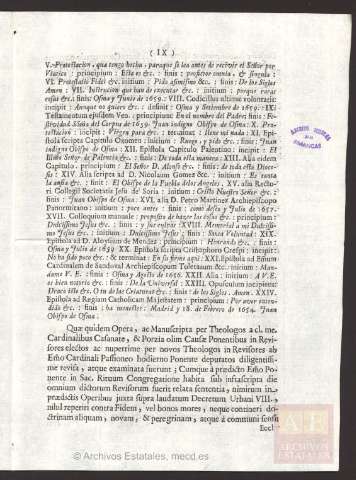 ( IX )
V. Protestacion, que tengo hecha, paraque se lea antes de recevir el Señor por
Viatico : principium : Esta es &c. : finis : profiteor omnia, & singula :
VI. Protestatio Fidei &c. initium : Pido assimismo &c. : finis : De los Siglos
Amen : VII. Instruccion que han de executar &c. : initium : porque varas
cosas &c. : finis : Osma y Junio de 1659. : VIII. Codicillus ultimæ voluntatis:
incipit : Aunque os quiero &c. : desinit : Osma y Setiembre de 1659. : IX.
Testamentum ejusdem Ven. principium : En el nombre del Padre : finis : Fes-
tividad. Sábia del Corpus de 1659. Juan indigno Obispo de Osma : X. Pro-
testacion : incipit : Virgen pura &c. : terminat : Ilene mi nada : XI. Epi-
stola scripta Capitulo Oxomen : initium : Ruego, y pido &c. : finis : Juan
indigno Obispo de Osma : XII. Epistola Capitulo Palentino : incipit : El
Illmo Señor de Palencia &c. : finis : De toda esta manera : XIII. Alia eidem
Capitulo, principium : El Señor D. Alonso &c. : finis : de toda esta Dioce-
sis : XIV. Alia scripta ad D. Nicolaum Gomez &c. : initium : Es tanta
la ansia &c. : finit : El Obispo de la Puebla de los Angeles. XV. alia Recto-
ri Collegii Societatis Jesu de Soria : initium : Christo Nuestro Señor &c. :
finis : Juan Obispo de Osma : XVI. alia D. Petro Martinez Archiepiscopo
Panormitano : initium : poco antes : finis : como desea y Julio de 1657.
XVII. Colloquium manuale : proposito de hazer las cosas &c. : principium :
Dulcissimo Jesus &c. : finis : y sus cultos XVIII. Memorial à mi Dulcissi-
mo Jesus &c. : initium : Dulcissimo Jesus : finis : Sine Voluntad : XIX.
Epistola ad D. Aloysium de Mendez : principium : Honrando &c. : finis :
Osma y Julio de 1659 XX. Epistola scripta Cristophoro Crespi : incipit :
No ha sido poco &c. : & terminat : En su firme aqui : XXI. Epistola ad Eñium
Cardinalem de Sandoval Archiepiscopum Toletanum &c. : initium : Man-
dame V. E. : finis : Osma y Agosto de 1656. XXII Alia : initium : A V. E.
es bien notorio &c. : finis : De la Universal : XXIII. Opusculum incipiens:
Oracs ella &c. Ora de las Creaturas &c. : finis : de los Siglos. Amen. XXIV.
Epistola ad Regium Catholicam Majestatem : principium : Por aver enten-
dido &c. : finis : ha menester. Madrid y 18. de Febrero de 1654. Juan
Obispo de Osma.
Quæ quidem Opera, ac Manuscripta per Theologos a cl. me.
Cardinalibus Casanate, & Porzia olim Causæ Ponentibus in Revi-
sores electos ac nuperrime per novos Theologos in Revisores ab
Eño Cardinali Passioneo hodierno Ponente deputatos diligentissi-
me revisa, atque examinata fuerunt ; Cumque à prædicto Eño Po-
nente in Sac. Rituum Congregatione habita sub infrascripta die
omnium dictorum Revisorum fuerit relata sententia, nimirum in
prædictis Operibus juxta supra laudatum Decretum Urbani VIII.
nihil reperiri contra Fidem, vel bonos mores, neque contineri do-
ctrinam aliquam, novam, & peregrinam, atque à communi sensu
Eccl
ARCHIVO GENERAL
DE
SIMANCAS
ARCHIVOS
ESTATALES
© Archivos Estatales, mecd.es